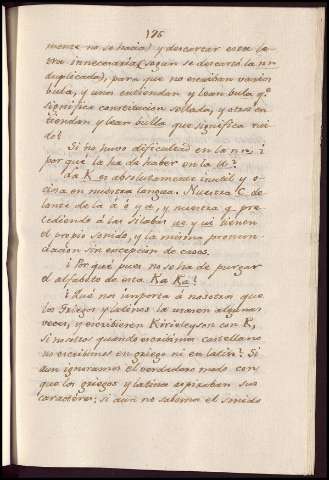 195
mente no se hacia) y descartar esta le-
tra innecesaria (segun se descartó la nn
duplicada), para que no escriban varios
bula, y unos entiendan y lean bula q.e
significa constitucion sellada, y otros en
tiendan y lean bulla que significa rui
do?
Si no huvo dificultad en la nn. ¿
por qué la ha de haber en la ll?
La K es absolutamente inutil y o-
ciosa en nuestra lengua. Nuestra C de-
lante de la á ó y ú, y nuestra q pre-
cediendo á las silabas ue y ui tienen
el propio sonido, y la misma pronun-
ciacion sin excepcion de casos.
¿Por qué pues no se ha de purgar
el alfabeto de esta Ka Ka?
¿Qué nos importa á nosotros que
los Griegos y latinos la usasen algunas
veces, y escribiesen Kirieleyson con K,
si nosotros quando escribimos castellano
no escribimos en griego ni en latin? Si
aun ignoramos el verdadero modo con
que los griegos y latinos aspiraban sus
caractéres; si aun no sabemos el sonido